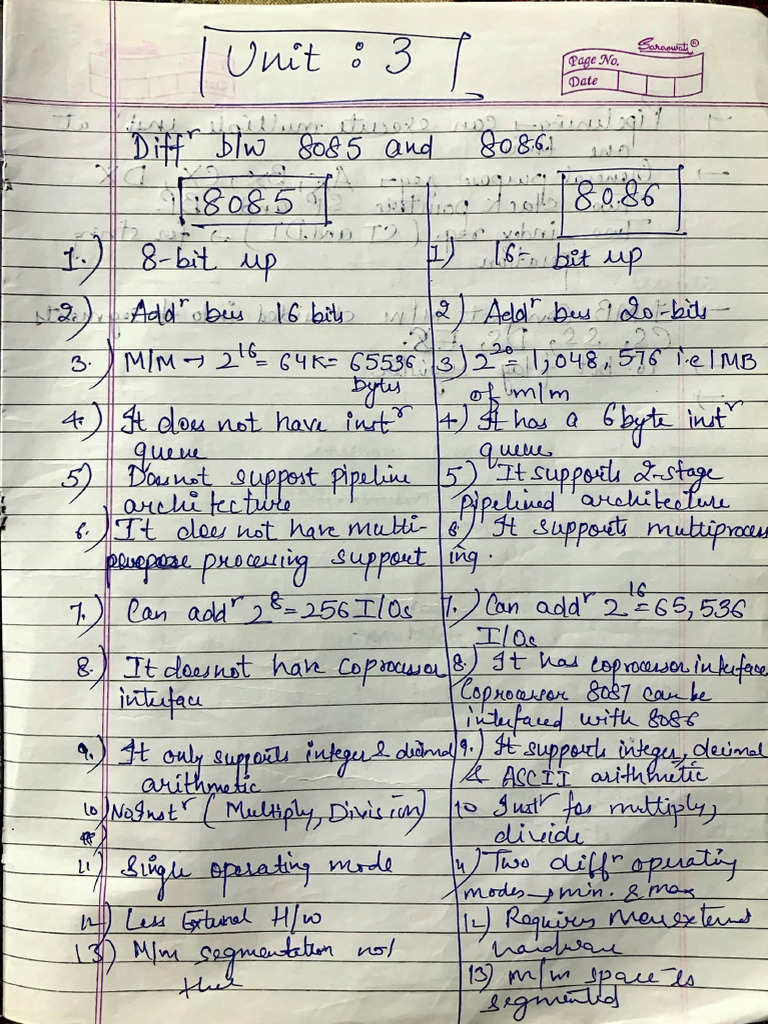 Unit : 3
Saraswati®
Page No.
Date
Diffʳ b/w 8085 and 8086.
8085
8086
1.) 8-bit up
1) 16- bit up
2.) Addʳ bus 16 bits
2) Addʳ bus 20-bits
3.) M/M → 2¹⁶ = 64K = 65536
bytes
3) 2²⁰ = 1,048,576 i.e 1MB
of m/m
4.) It does not have instʳ
queue
4) It has a 6 byte instʳ
queue
5) Doesnot support pipeline
architecture
5) It supports 2-stage
pipelined architecture
6.) It does not have multi-
processing support
6) It supports multiprocess
ing.
7.) Can addʳ 2⁸ = 256 I/Os
7.) Can addʳ 2¹⁶ = 65,536
I/Os
8.) It doesnot have coprocessor
interface
8.) It has coprocessor interface
Coprocessor 8087 can be
interfaced with 8086
9.) It only supports integer & decimal
arithmetic
9.) It supports integer, decimal
& ASCII arithmetic
10) No Instʳ (Multiply, Division)
10 Instʳ for multiply,
divide
11) Single operating mode
11) Two diffʳ operating
modes → min. & max
12) Less External H/w
12) Requires more external
hardware
13) M/m segmentation not
there
13) m/m space is
segmented